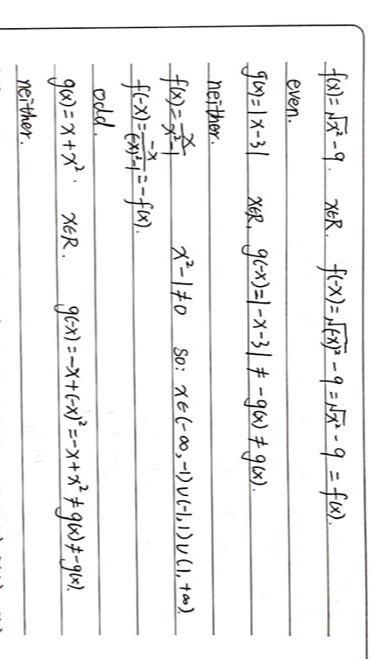 f(x)=√x² - 9. x∈R. f(-x)=√(-x)² - 9 = √x² - 9 = f(x).
even.
g(x)=|x-3| x∈R, g(-x)=|-x-3| ≠ -g(x) ≠ g(x).
neither.
f(x)= x/(x²-1) x²-1≠0 so: x∈(-∞,-1)∪(-1,1)∪(1,+∞)
f(-x)= -x/((-x)²-1) = -f(x).
odd.
g(x)=x+x². x∈R. g(-x)=-x+(-x)²=-x+x² ≠ g(x) ≠ -g(x).
neither.